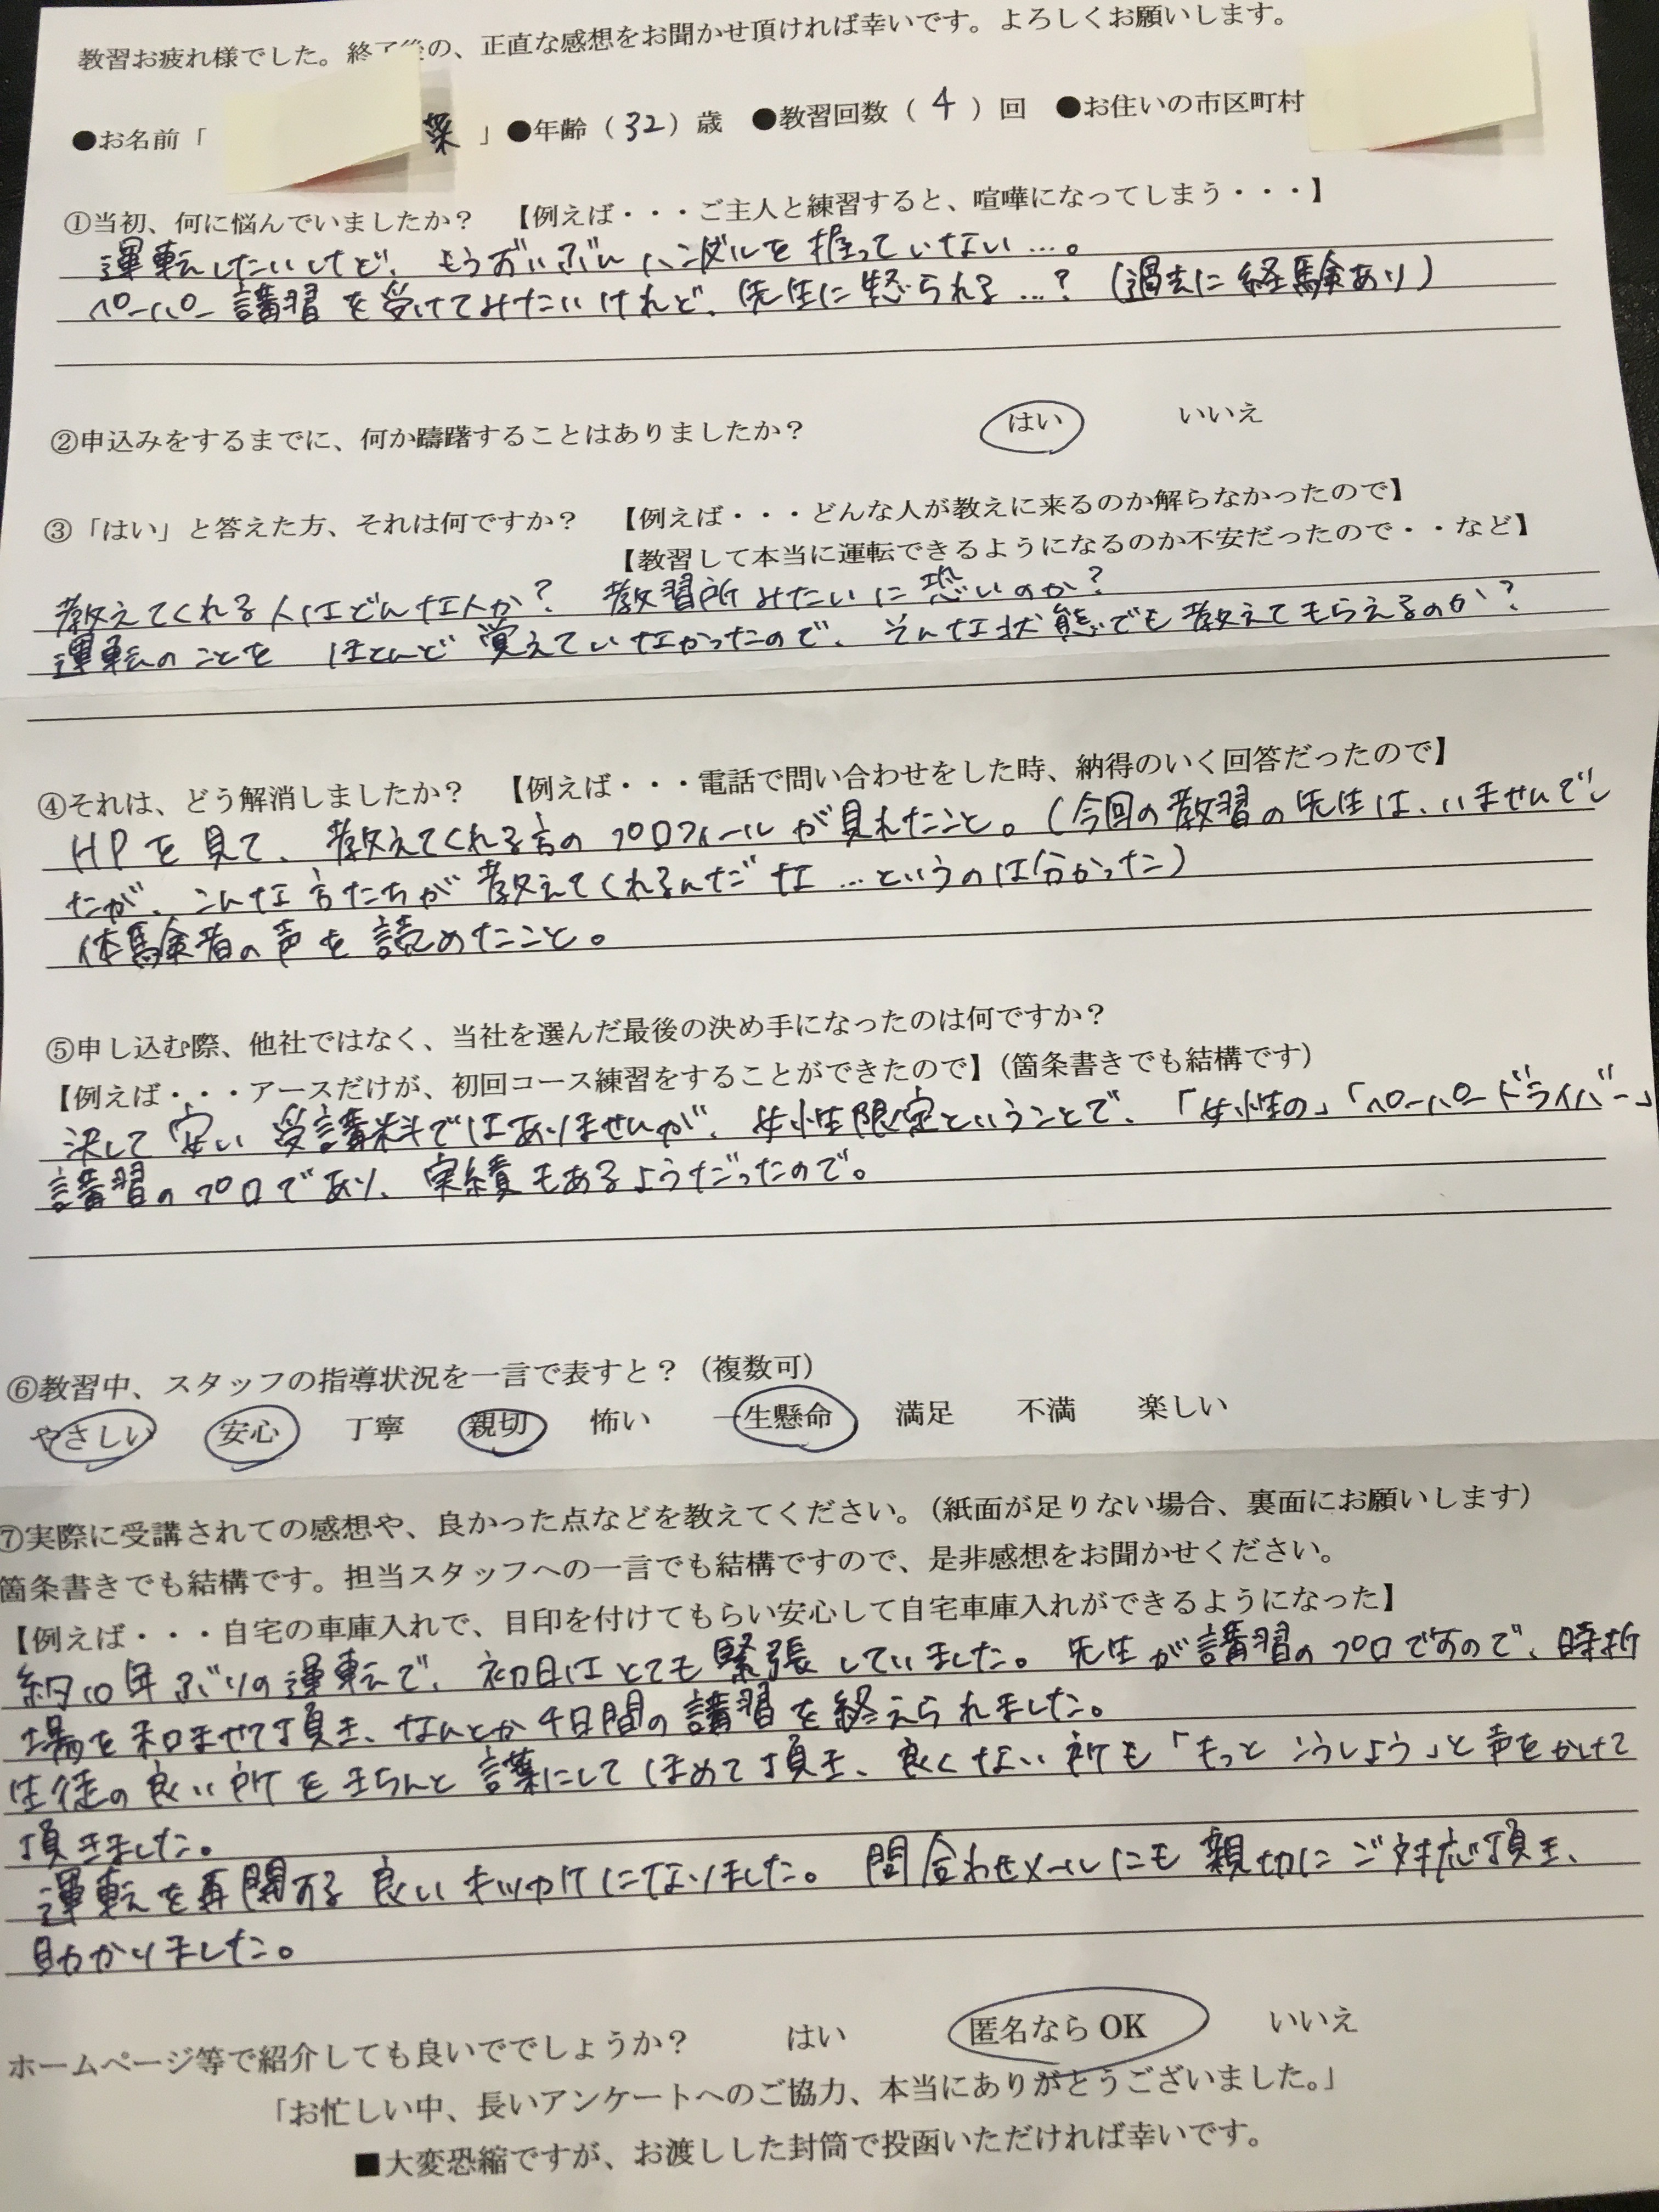 教習お疲れ様でした。終了後の、正直な感想をお聞かせ頂ければ幸いです。よろしくお願いします。
●お名前「 菜 」●年齢（32）歳 ●教習回数（ 4 ）回 ●お住いの市区町村
①当初、何に悩んでいましたか？ 【例えば・・・ご主人と練習すると、喧嘩になってしまう・・・】
運転したいけど、もうずいぶんハンドルを握っていない…。
ペーパー講習を受けてみたいけれど、先生に怒られる…？（過去に経験あり）
②申込みをするまでに、何か躊躇することはありましたか？ はい いいえ
③「はい」と答えた方、それは何ですか？ 【例えば・・・どんな人が教えに来るのか解らなかったので】
【教習して本当に運転できるようになるのか不安だったので・・など】
教えてくれる人はどんな人か？ 教習所みたいに恐いのか？
運転のことを ほとんど覚えていなかったので、そんな状態でも教えてもらえるのか？
④それは、どう解消しましたか？ 【例えば・・・電話で問い合わせをした時、納得のいく回答だったので】
HPを見て、教えてくれる方のプロフィールが見れたこと。（今回の教習の先生は、いませんでし
たが、こんな方たちが教えてくれるんだな…というのは分かった）
体験者の声を読めたこと。
⑤申し込む際、他社ではなく、当社を選んだ最後の決め手になったのは何ですか？
【例えば・・・アースだけが、初回コース練習をすることができたので】（箇条書きでも結構です）
決して安い受講料ではありませんが、女性限定ということで、「女性の」「ペーパードライバー」
講習のプロであり、実績もあるようだったので。
⑥教習中、スタッフの指導状況を一言で表すと？（複数可）
やさしい 安心 丁寧 親切 怖い 一生懸命 満足 不満 楽しい
⑦実際に受講されての感想や、良かった点などを教えてください。（紙面が足りない場合、裏面にお願いします）
箇条書きでも結構です。担当スタッフへの一言でも結構ですので、是非感想をお聞かせください。
【例えば・・・自宅の車庫入れで、目印を付けてもらい安心して自宅車庫入れができるようになった】
約10年ぶりの運転で、初日はとても緊張していました。先生が講習のプロですので、時折
場を和ませて頂き、なんとか4日間の講習を終えられました。
生徒の良い所をきちんと言葉にしてほめて頂き、良くない所も「もっとこうしよう」と声をかけて
頂きました。
運転を再開する良いキッカケになりました。問合わせメールにも親切にご対応頂き、
助かりました。
ホームページ等で紹介しても良いででしょうか？ はい 匿名なら OK いいえ
「お忙しい中、長いアンケートへのご協力、本当にありがとうございました。」
■大変恐縮ですが、お渡しした封筒で投函いただければ幸いです。